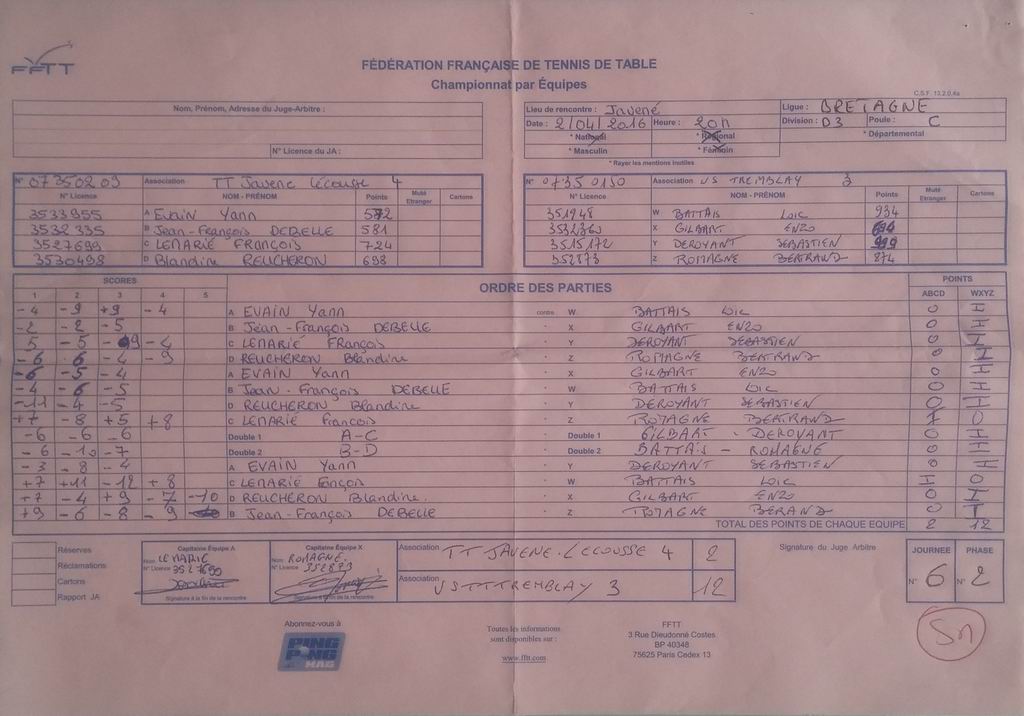 FFTT
FÉDÉRATION FRANÇAISE DE TENNIS DE TABLE
Championnat par Équipes
C.S.F. 13.2.0.4a
Nom, Prénom, Adresse du Juge-Arbitre :
N° Licence du JA :
Lieu de rencontre : Javené
Date : 2/04/2016 Heure : 20h
* National * Régional
* Masculin * Féminin
* Rayer les mentions inutiles
Ligue : BRETAGNE
Division : D3 Poule : C
* Départemental
N° 07350209 Association TT Javene Lécousse 4
N° Licence NOM - PRÉNOM Points Muté Etranger Cartons
3533955 A Evain Yann 572
3532335 B Jean-François DEBELLE 581
3527699 C LEMARIÉ François 724
3530498 D Blandine REUCHERON 698
N° 07350150 Association US TREMBLAY 3
N° Licence NOM - PRÉNOM Points Muté Etranger Cartons
351948 W BATTAIS LOIC 934
3532360 X GILBART ENZO
3515172 Y DEROYANT SEBASTIEN
352873 Z ROMAGNE BERTRAND 874
SCORES ORDRE DES PARTIES POINTS
1 2 3 4 5 ABCD WXYZ
-4 -9 +9 -4 A EVAIN Yann contre W BATTAIS LOIC 0
-2 -2 -5 B Jean-François DEBELLE X GILBART ENZO 0
-5 -5 -4 C LEMARIÉ François Y DEROYANT SEBASTIEN 0
-6 6 -4 -9 D REUCHERON Blandine Z ROMAGNE BERTRAND 0
-6 -5 -4 A EVAIN Yann X GILBART ENZO 0
-4 -6 -5 B Jean-François DEBELLE W BATTAIS LOIC 0
-11 -4 -5 D REUCHERON Blandine Y DEROYANT SEBASTIEN 0
+7 -8 +5 +8 C LEMARIÉ François Z ROMAGNE BERTRAND 1 0
-6 -6 -6 Double 1 A-C Double 1 GILBART - DEROYANT 0
-6 -10 -7 Double 2 B-D Double 2 BATTAIS - ROMAGNÉ 0
-3 -8 -4 A EVAIN Yann Y DEROYANT SEBASTIEN 0
+7 +11 -12 +8 C LEMARIÉ Fançois W BATTAIS LOIC 0
+7 -4 +9 -7 -10 D REUCHERON Blandine. X GILBART ENZO 0
+9 -6 -8 -9 B Jean-François DEBELLE Z ROMAGNE BERAND 0
TOTAL DES POINTS DE CHAQUE EQUIPE 2 12
Réserves
Réclamations
Cartons
Rapport JA
Capitaine Équipe A
Nom LEMARIE
N° Licence 3527699
Signature à la fin de la rencontre
Capitaine Equipe X
Nom ROMAGNE
N° Licence 352873
Signature à la fin de la rencontre
Association TT JAVENE-LECOUSSE 4 2
Association US TT TREMBLAY 3 12
Signature du Juge Arbitre
JOURNEE PHASE
N° 6 N° 2
Abonnez-vous à
PING PONG MAG
Toutes les informations
sont disponibles sur :
www.fftt.com
FFTT
3 Rue Dieudonné Costes
BP 40348
75625 Paris Cedex 13